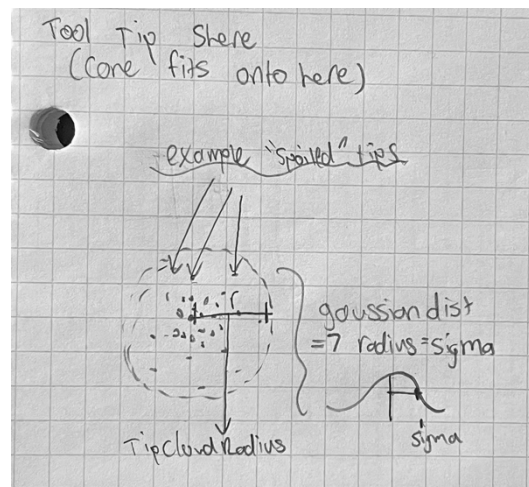 Tool Tip Shere
(Cone fits onto here)
example "Spoiled" tips
r
gaussian dist
=7 radius=sigma
sigma
TipCloudRadius